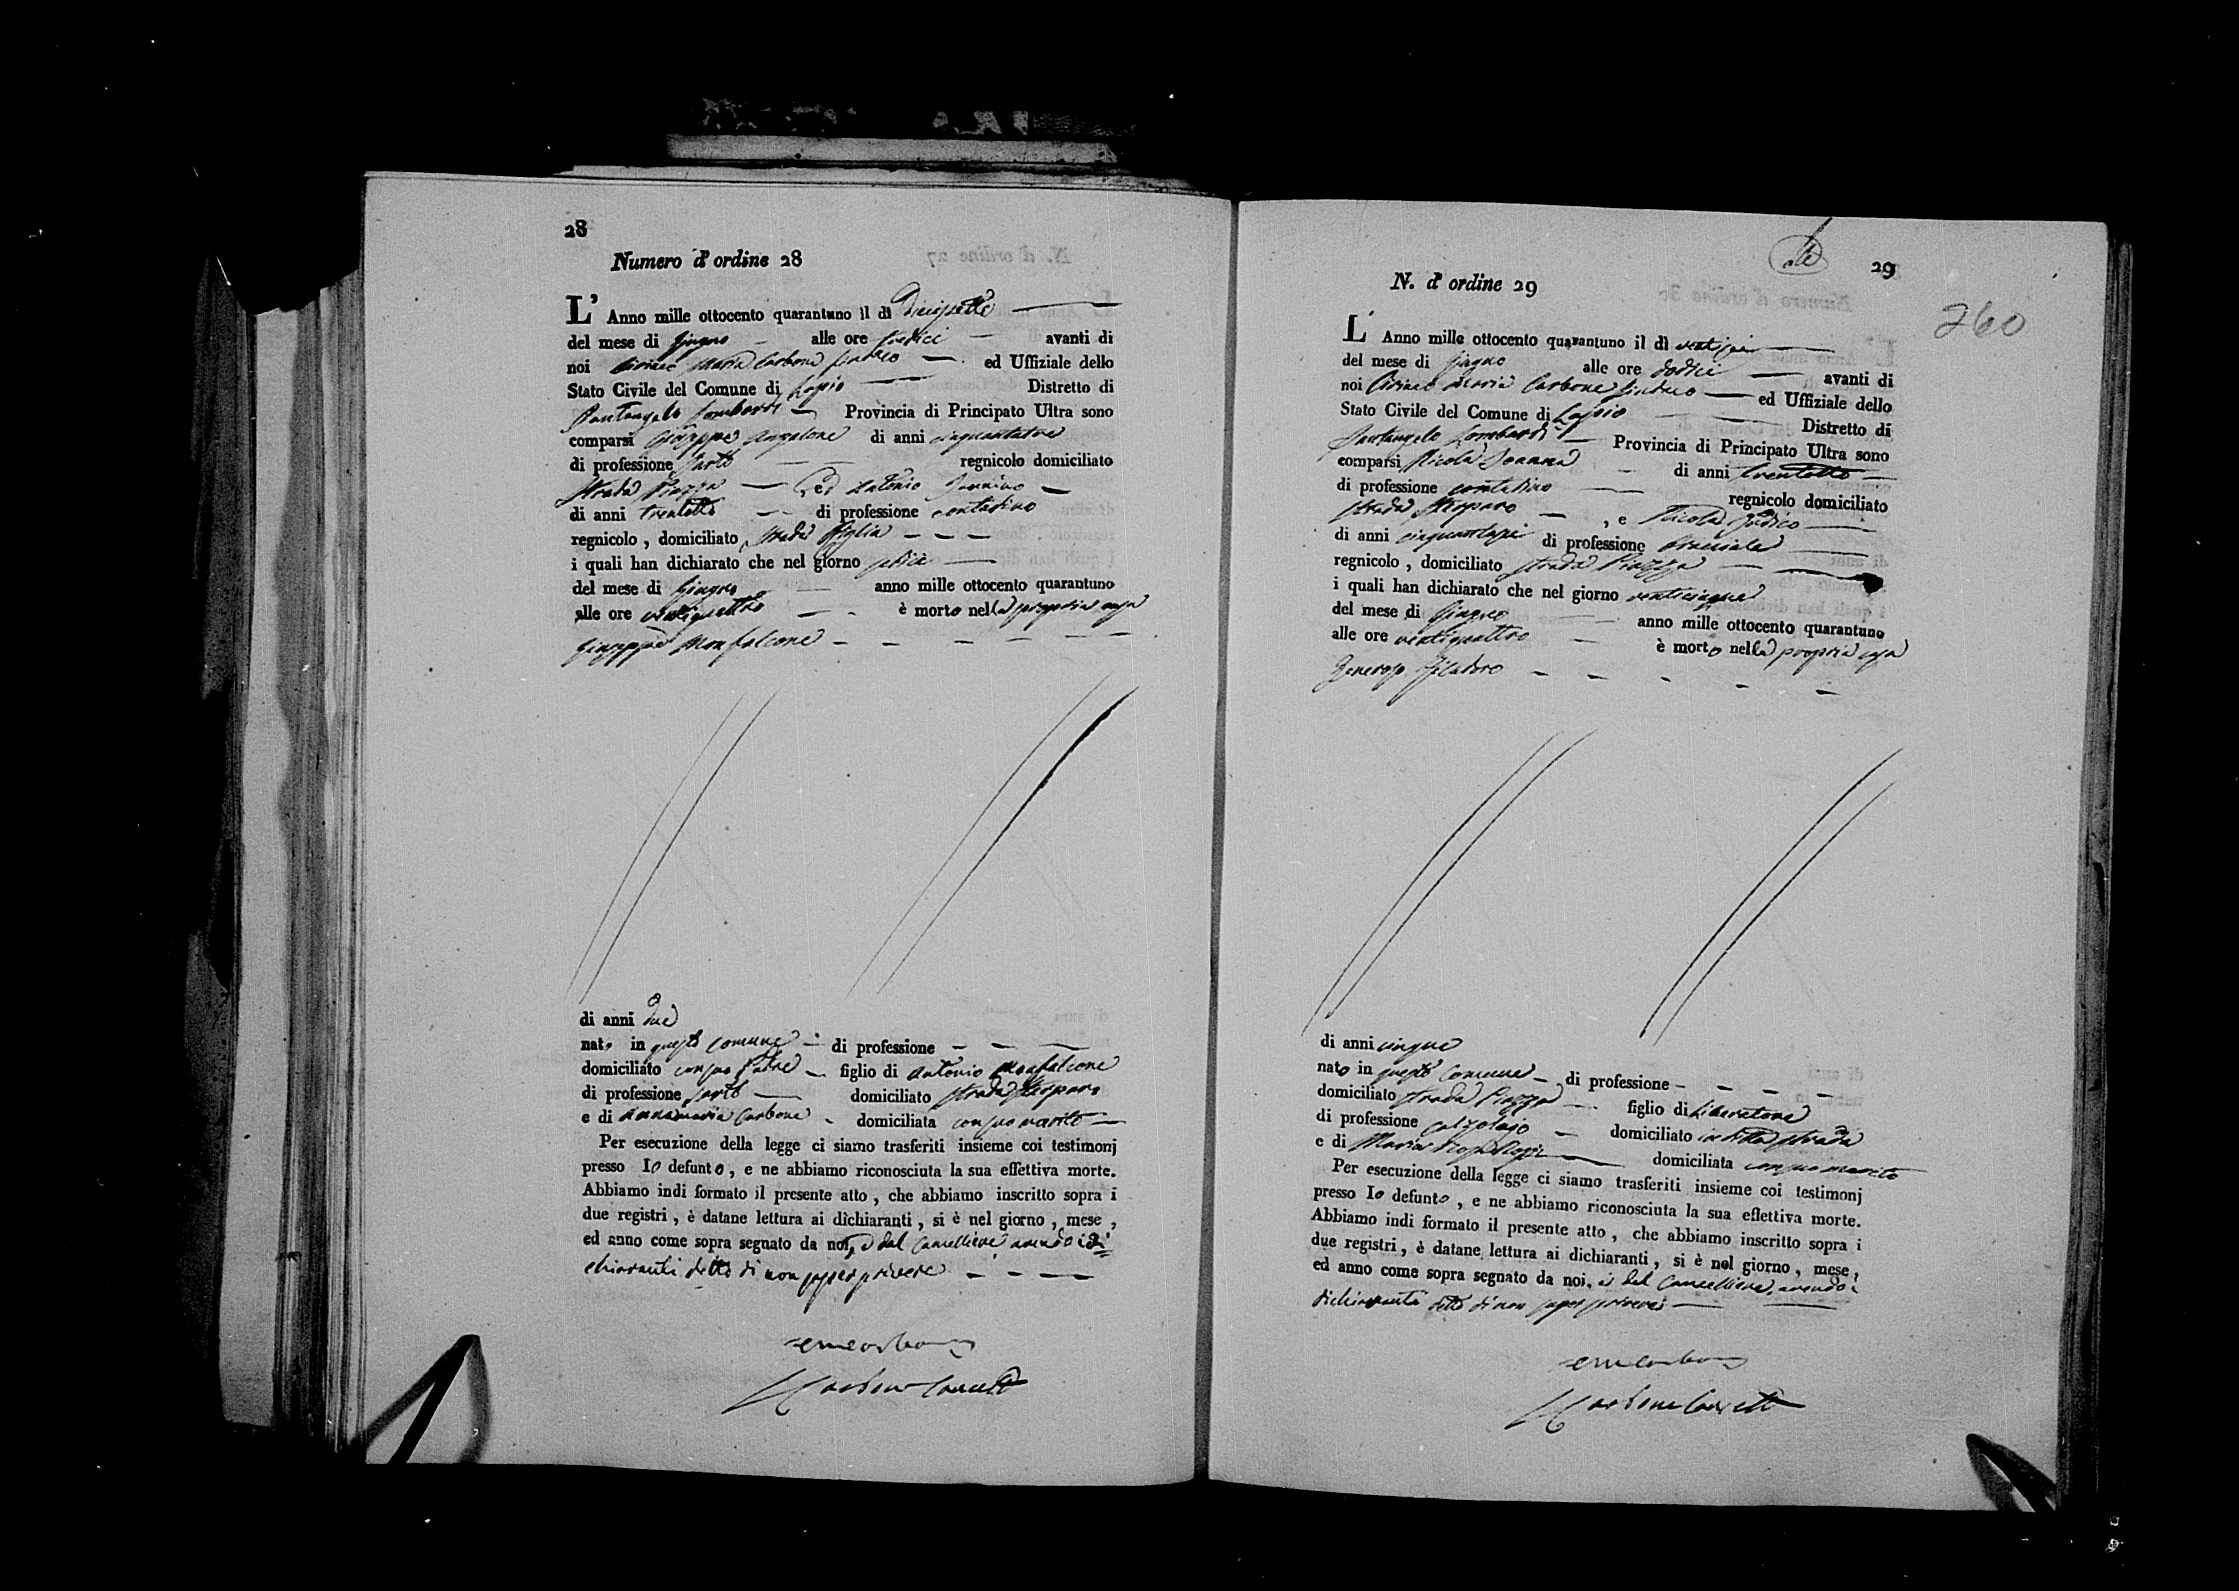 28
Numero d' ordine 28
L' Anno mille ottocento quarantuno il di diciasette
del mese di Giugno alle ore tredici avanti di
noi Ciriaco Maria Carbone Sindaco ed Uffiziale dello
Stato Civile del Comune di Lapio Distretto di
Santangelo Lombardi Provincia di Principato Ultra sono
comparsi Giuseppe Anzalone di anni cinquantatre
di professione sarto regnicolo domiciliato
strada Piazza ed Antonio
di anni trentotto di professione contadino
regnicolo , domiciliato strada
i quali han dichiarato che nel giorno sedici
del mese di Giugno anno mille ottocento quarantuno
alle ore ventiquattro è morto nella propria casa
Giuseppe Monfalcone
di anni due
nato in questo Comune di professione
domiciliato con suo Padre figlio di Antonio Monfalcone
di professione sarto domiciliato strada
e di Annamaria Carbone domiciliata con suo marito
Per esecuzione della legge ci siamo trasferiti insieme coi testimonj
presso lo defunto , e ne abbiamo riconosciuta la sua effettiva morte.
Abbiamo indi formato il presente atto , che abbiamo inscritto sopra i
due registri , è datane lettura ai dichiaranti , si è nel giorno , mese ,
ed anno come sopra segnato da noi, e dal Cancelliere avendo i di=
chiaranti detto di non saper scrivere
Carbone Cancell
29
260
N. d' ordine 29
L' Anno mille ottocento quarantuno il di ventisei
del mese di Giugno alle ore dodici avanti di
noi Ciriaco Maria Carbone Sindaco ed Uffiziale dello
Stato Civile del Comune di Lapio Distretto di
Santangelo Lombardi Provincia di Principato Ultra sono
comparsi Nicola di anni trentotto
di professione contadino regnicolo domiciliato
strada , e Nicola
di anni cinquantasei di professione bracciale
regnicolo , domiciliato strada Piazza
i quali han dichiarato che nel giorno venticinque
del mese di Giugno anno mille ottocento quarantuno
alle ore ventiquattro è morto nella propria casa
Generoso
di anni cinque
nato in questo Comune di professione
domiciliato strada Piazza figlio di Liberatore
di professione calzolajo domiciliato in detta strada
e di Maria domiciliata con suo marito
Per esecuzione della legge ci siamo trasferiti insieme coi testimonj
presso lo defunto , e ne abbiamo riconosciuta la sua effettiva morte.
Abbiamo indi formato il presente atto , che abbiamo inscritto sopra i
due registri , è datane lettura ai dichiaranti , si è nel giorno , mese ,
ed anno come sopra segnato da noi, e dal Cancelliere, avendo i
dichiaranti detto di non saper scrivere
Carbone Cancell